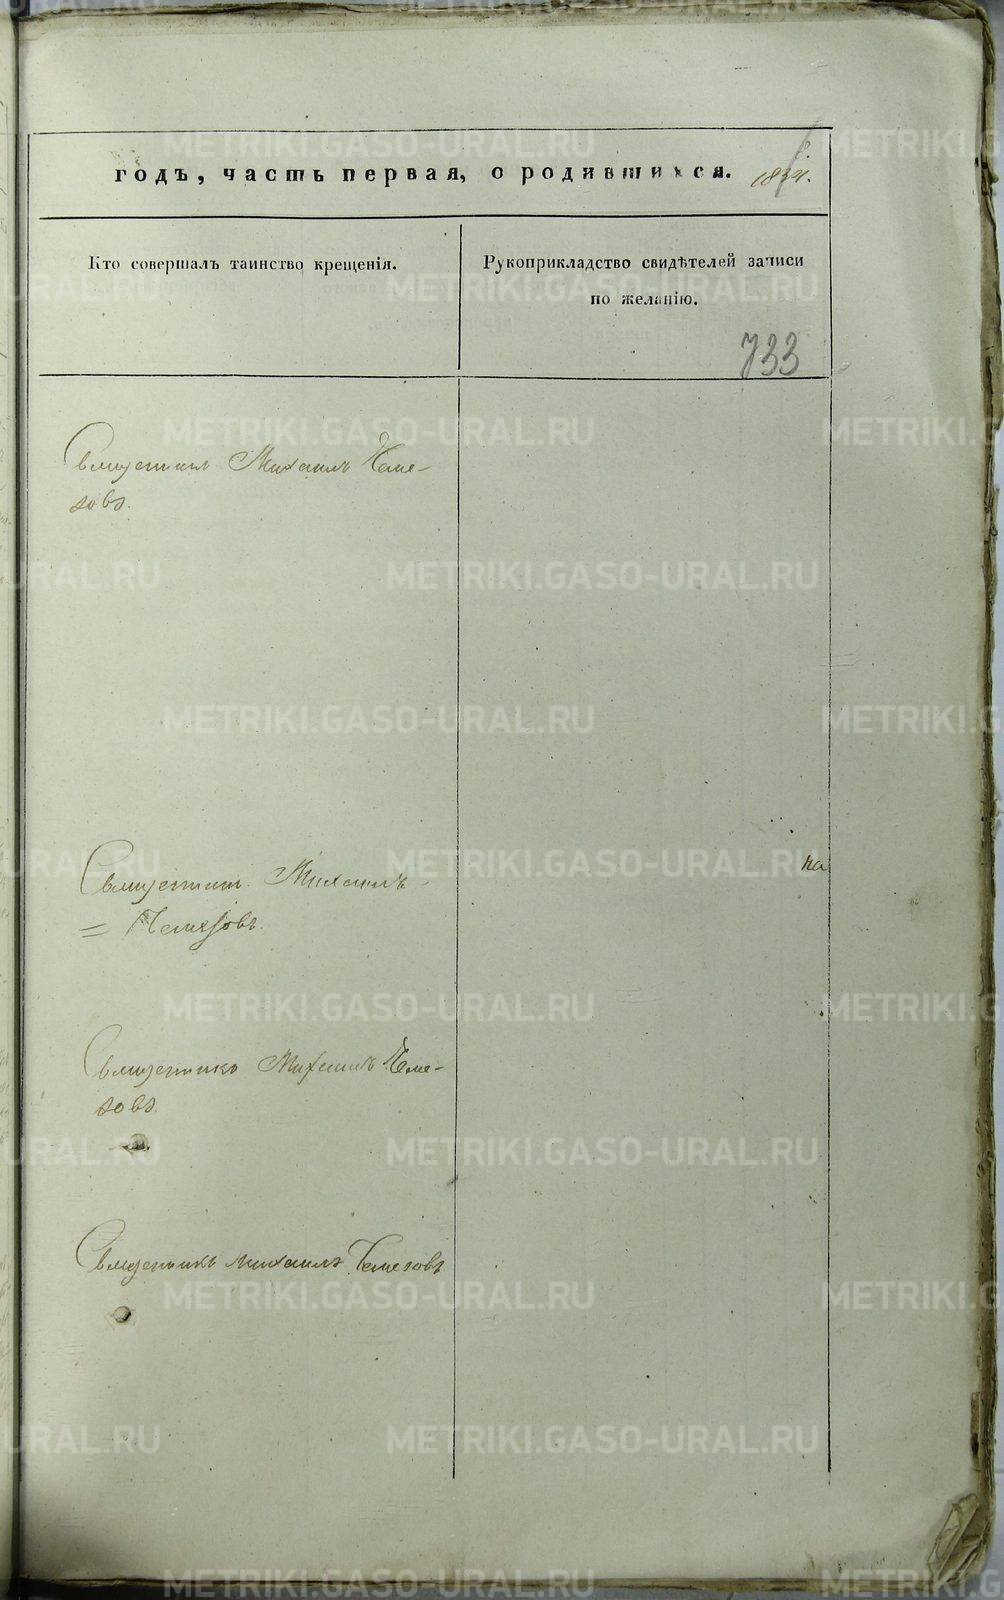 годъ, часть первая, о родившихся.
Кто совершалъ таинство крещенія.
Рукоприкладство свидѣтелей записи
по желанію.
733
Священник Михаилъ
зовъ.
на
Священник Михаилъ
Священникъ Михаилъ
зовъ.
Священникъ Михаилъ
METRIKI.GASO-URAL.RU